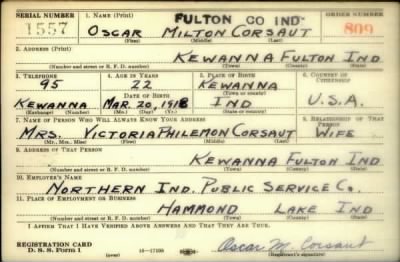 SERIAL NUMBER 1. NAME (Print) FULTON CO IND ORDER NUMBER
1557 OSCAR MILTON CORSAUT 809
(First) (Middle) (Last)
2. ADDRESS (Print)
KEWANNA FULTON IND
(Number and street or R. F. D. number) (Town) (County) (State)
3. TELEPHONE 4. AGE IN YEARS 5. PLACE OF BIRTH 6. COUNTRY OF CITIZENSHIP
95 22 KEWANNA
DATE OF BIRTH (Town or county)
KEWANNA MAR. 20, 1918 IND U.S.A.
(Exchange) (Number) (Mo.) (Day) (Yr.) (State or country)
7. NAME OF PERSON WHO WILL ALWAYS KNOW YOUR ADDRESS 8. RELATIONSHIP OF THAT PERSON
MRS. VICTORIA PHILEMON CORSAUT WIFE
(Mr., Mrs., Miss) (First) (Middle) (Last)
9. ADDRESS OF THAT PERSON
KEWANNA FULTON IND
(Number and street or R. F. D. number) (Town) (County) (State)
10. EMPLOYER'S NAME
NORTHERN IND. PUBLIC SERVICE CO.
11. PLACE OF EMPLOYMENT OR BUSINESS
HAMMOND LAKE IND
(Number and street or R. F. D. number) (Town) (County) (State)
I AFFIRM THAT I HAVE VERIFIED ABOVE ANSWERS AND THAT THEY ARE TRUE.
REGISTRATION CARD
D. S. S. Form 1 Oscar M. Corsaut
(Registrant's signature)